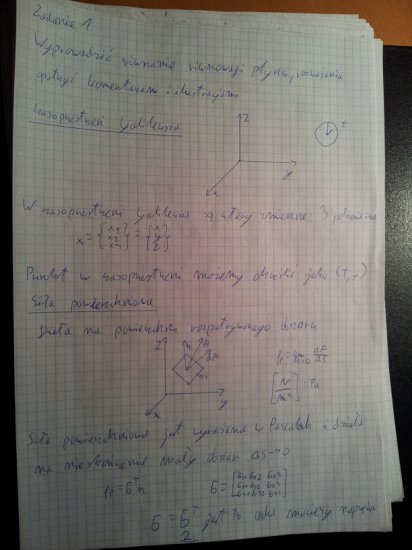 Zadanie 1
Wyprowadzić równanie równowagi płynu, rozważania
opatrzyć komentarzami i ilustracjami
czasoprzestrzeń Galileusza
z
t
y
x
W czasoprzestrzeni Galileusza są cztery zmienne: 3
x = { x1 x2 x3 } = { x y z }
Punkt w czasoprzestrzeni możemy określić jako (t, r)
Siła powierzchniowa
Działa na powierzchni rozpatrywanego obszaru
z
n
ΔS
y
x
p = lim ΔS→0 ΔP/ΔS
[N/m²] = Pa
Siła powierzchniowa jest wyrażana w Pascalach i działa
na nieskończenie mały obszar ΔS→0
p = σᵀn
σ =
σ = σᵀ jest to macierzy naprężeń
2